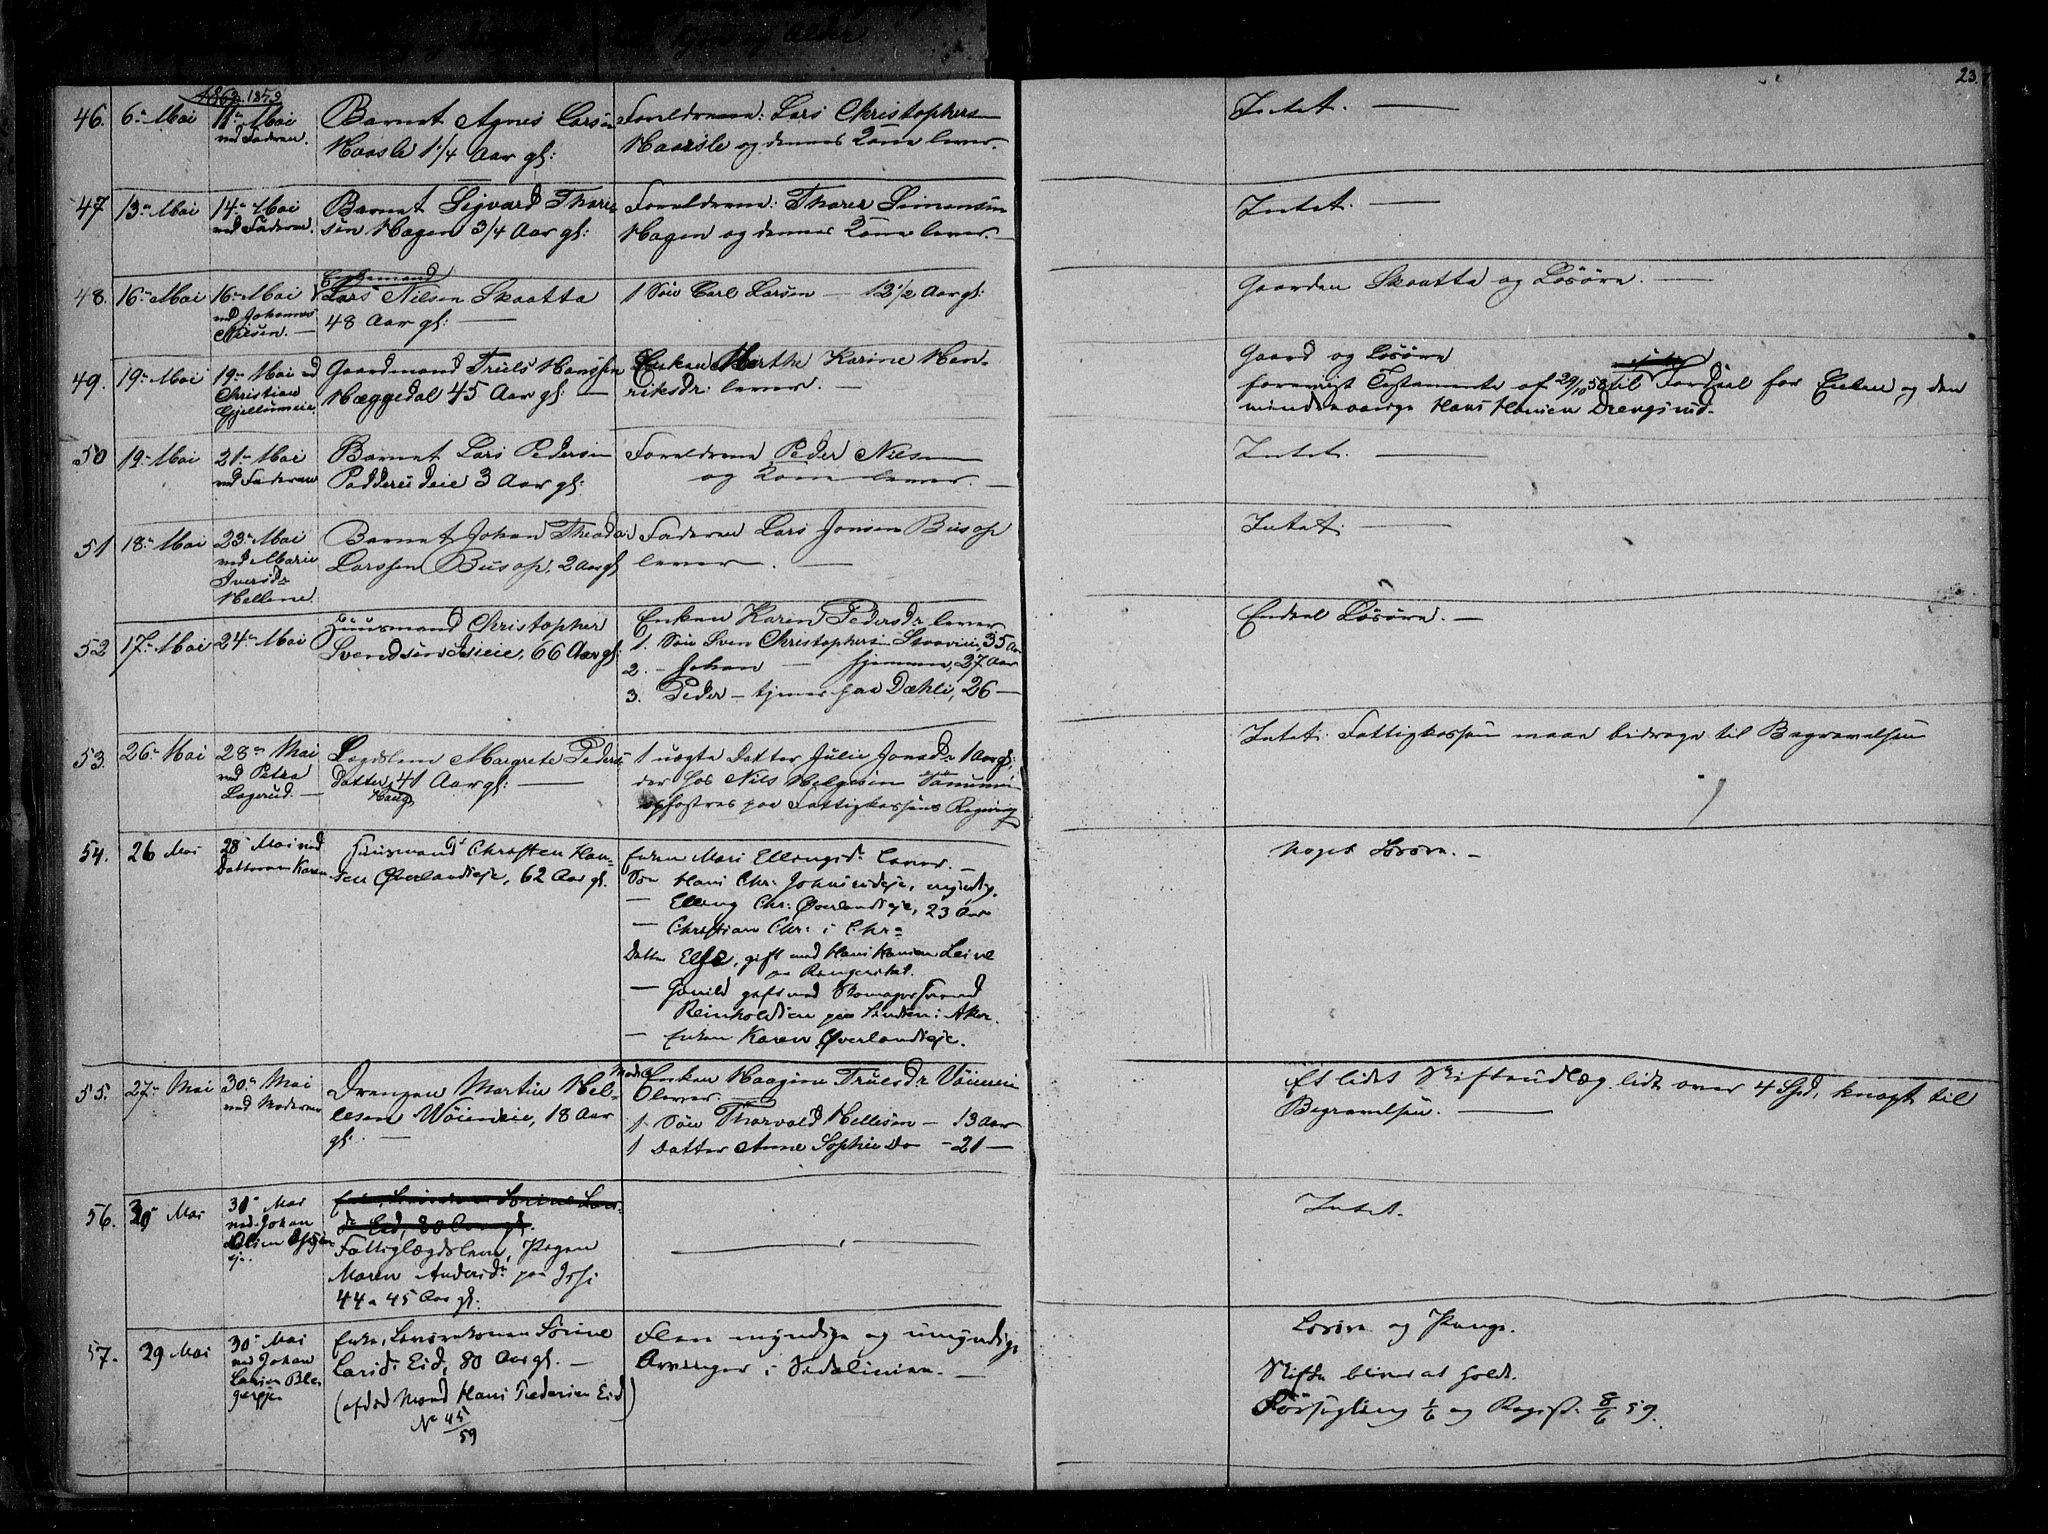 23.
1862. 1859
46. 6te Mai 11te Mai ved Faderen. Barnet Agnes Larsen Haasle 1 1/4 Aar gl: Forældrene: Lars Christophersen Haarsle og dennes Kone lever. Intet. —
47 13te Mai 14te Mai ved Faderen. Barnet Sigvard Thoresen Hagen 3/4 Aar gl: Forældrene: Thorer Simensen Hagen og dennes Kone lever. — Intet. —
48. 16te Mai 16te Mai ved Johannes Nilsen. — Lars Nilsen Skaatta 48 Aar gl: — 1 Søn Carl Larsen — 12 1/2 Aar gl: Gaarden Skaatta og Løsøre. —
49. 19te Mai 19te Mai ved Christian Gjellumeie Gaardmand Truls Hanssen Hæggedal 45 Aar gl: — Enken Marthe Karine Henriksdr: lever. — Gaard og Løsøre
forevigt Testamente af 29/10 58 til Fordeel for Enken og den
mindreaarige Hans Hansen Drengsrud.
50 19te Mai 21te Mai ved Faderen Barnet Lars Pedersen Padderudeie 3 Aar gl: Forældrene Peder Nilsen og Kone lever. — Intet. —
51 18te Mai 23te Mai ved Marie Iversdr Hellene. Barnet Johan Theodor Larssen Busop, 2 Aar gl Faderen Lars Jonsen Busop lever. — Intet. —
52 17te Mai 24te Mai Huusmand Christopher Svendsen eie, 66 Aar gl: Enken Karen Pedersdr lever
1. Søn Sven Christophersen 35 Aar
2. - Johan — hjemme, 27 Aar
3. Peder — tjener paa Dæhli, 26 —
Endeel Løsøre. —
53. 26te Mai 28de Mai ved Petra Lagerud. — Lægdslem Margrete Peders Datter, 41 Aar gl: — Haug 1 uægte Datter Julie Jonsdr 1 Aar gl:
der hos Nils Helgesen
opfostres paa Fattigkassens Regning
Intet. Fattigkassen maa bidrage til Begravelsen
54. 26 Mai 28 Mai ved Datteren Karen Huusmand Christen Hansen Øverlandseje, 62 Aar gl. Enken Mari Ellingsd: lever. —
Søn Hans Chr: myndig.
— Elling Chr: Øverlandseje, 23 Aar
— Christian Chr: i Chr:
Datter Else, gift med Hans Hansen
— gift med Skomagersvend
Reinholdsen paa i Aker.
— Enken Karen Øverlandseje.
Noget Løsøre. —
55. 27de Mai 30te Mai ved Moderen Drengen Martin Hellesen Wøieneie, 18 Aar gl. — Moder Enken Haagine Truelsdr lever. —
1 Søn Thorvald Hellesen — 13 Aar
1 Datter Anne Sophie Do — 21 —
Et lidet Skifteudlæg lidt over 4 Spd, knapt til
Begravelsen. —
56. 30 Mai 30 Mai ved Johan Fattiglægdslem, Pigen
Maren Andersdr: paa
44 a 45 Aar gl.
Intet.
57. 29 Mai 30 Mai ved Johan Larsen Enke, Sørine
Larsd: Eid, 80 Aar gl. —
(afdød Mand Hans Pedersen Eid)
No 45/59
Flere myndige og umyndige
Arvinger i Sidelinien. —
Løsøre og Penge.
Skifte bliver at holde.
Forsegling 1/6 og Regist. 8/6 59.